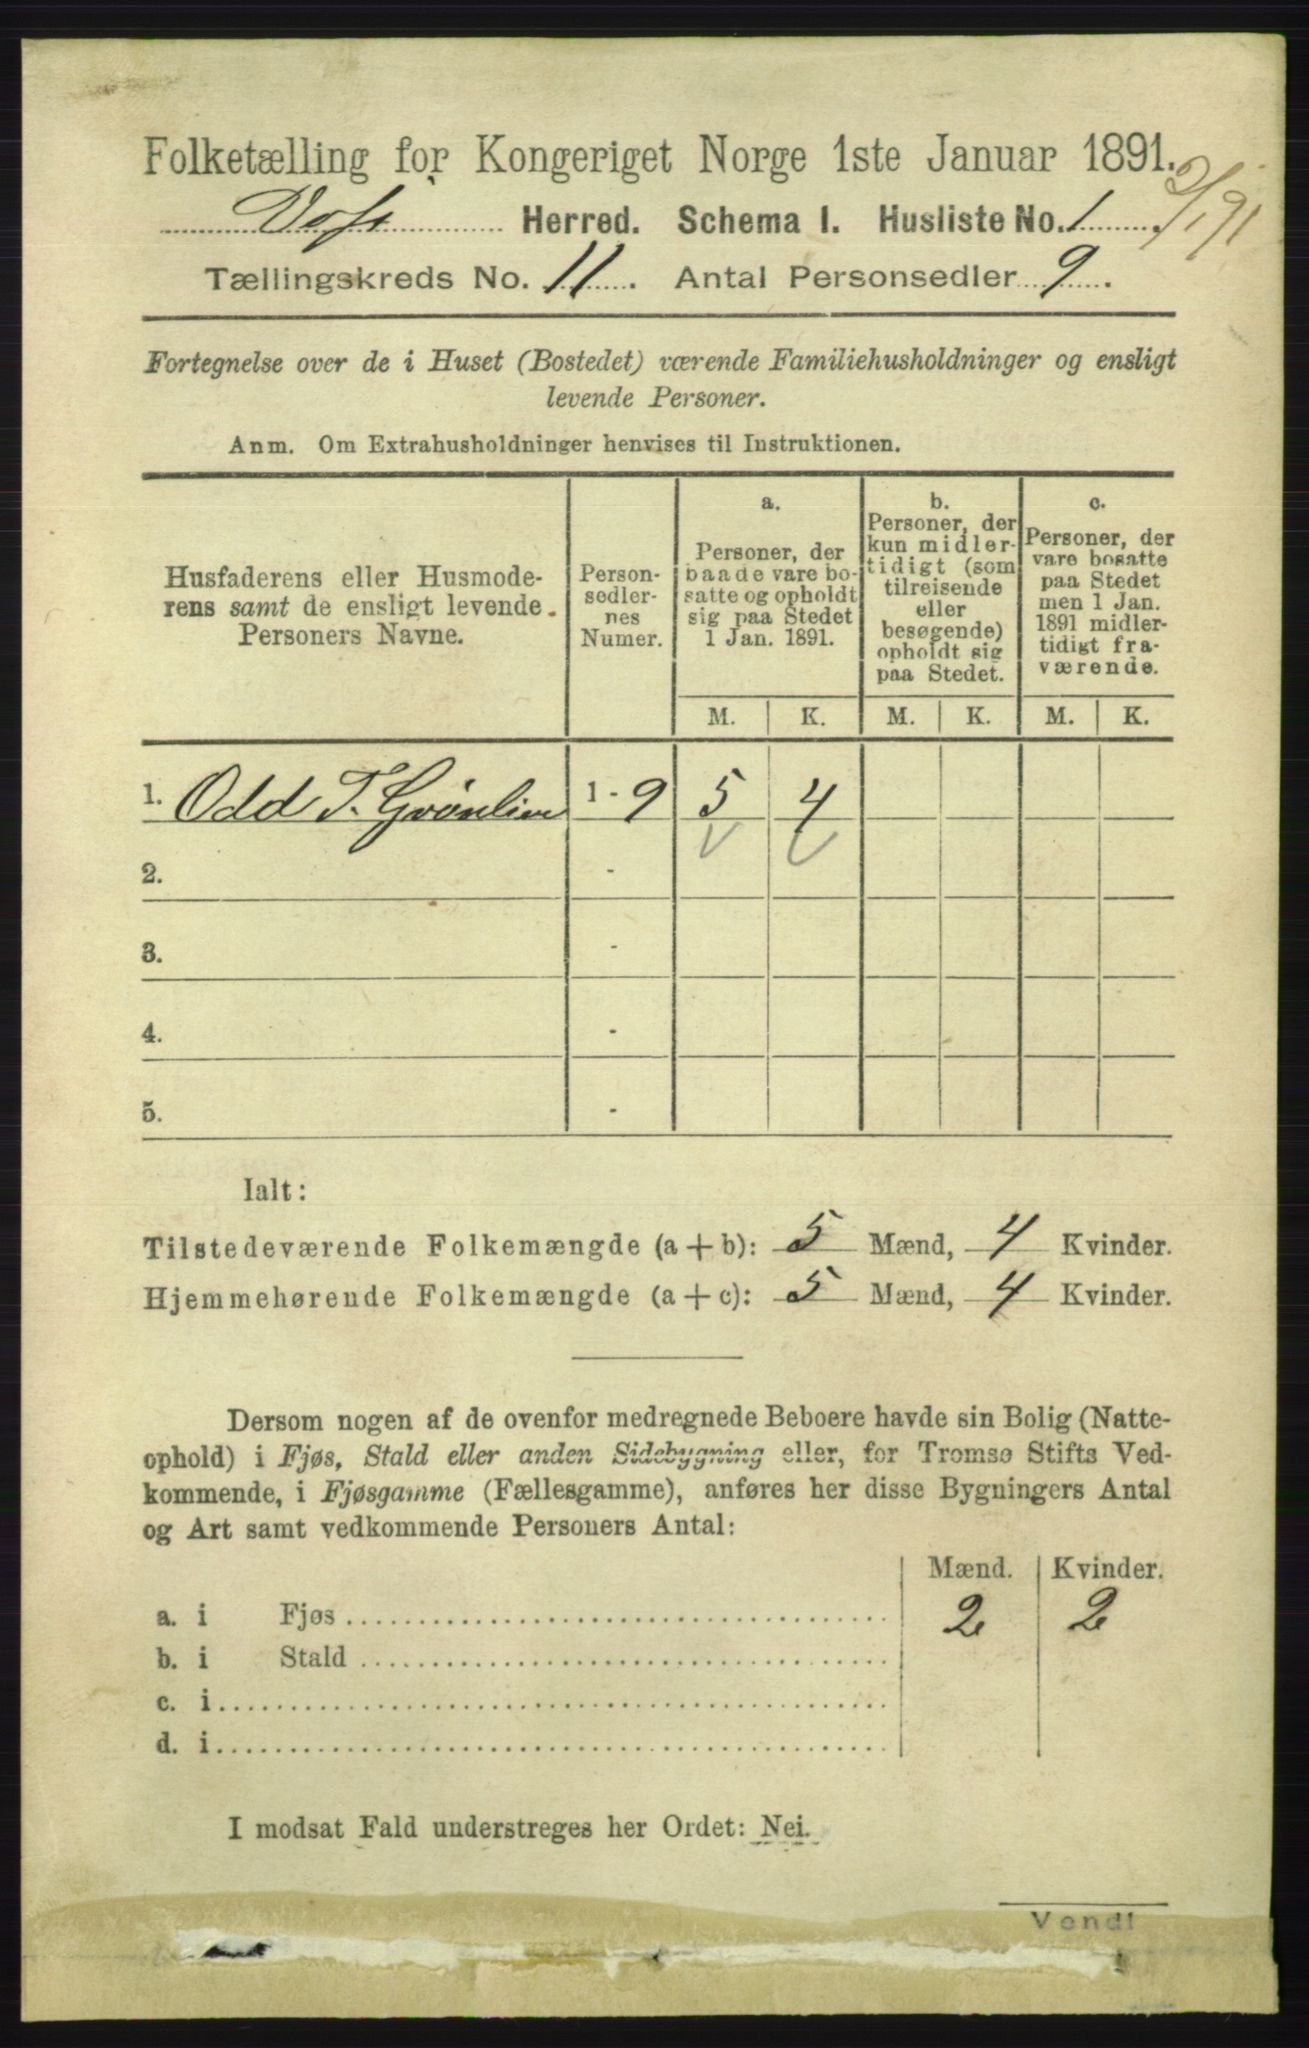 Folketælling for Kongeriget Norge 1ste Januar 1891.
2/1 91
Voss Herred. Schema I. Husliste No. 1.
Tællingskreds No. 11. Antal Personsedler 9.
Fortegnelse over de i Huset (Bostedet) værende Familiehusholdninger og ensligt
levende Personer.
Anm. Om Extrahusholdninger henvises til Instruktionen.
Husfaderens eller Husmode-
rens samt de ensligt levende
Personers Navne.
Person-
sedler-
nes
Numer.
a.
Personer, der
baade vare bo-
satte og opholdt
sig paa Stedet
1 Jan. 1891.
b.
Personer, der
kun midler-
tidigt (som
tilreisende
eller
besøgende)
opholdt sig
paa Stedet.
c.
Personer, der
vare bosatte
paa Stedet
men 1 Jan.
1891 midler-
tidigt fra-
værende.
M. K. M. K. M. K.
1. Odd T. Grønlien 1 - 9 5 4
2. -
3. -
4. -
5. -
Ialt:
Tilstedeværende Folkemængde (a + b): 5 Mænd, 4 Kvinder.
Hjemmehørende Folkemængde (a + c): 5 Mænd, 4 Kvinder.
Dersom nogen af de ovenfor medregnede Beboere havde sin Bolig (Natte-
ophold) i Fjøs, Stald eller anden Sidebygning eller, for Tromsø Stifts Ved-
kommende, i Fjøsgamme (Fællesgamme), anføres her disse Bygningers Antal
og Art samt vedkommende Personers Antal:
Mænd. Kvinder.
a. i Fjøs 2 2
b. i Stald
c. i
d. i
I modsat Fald understreges her Ordet: Nei.
Vend!